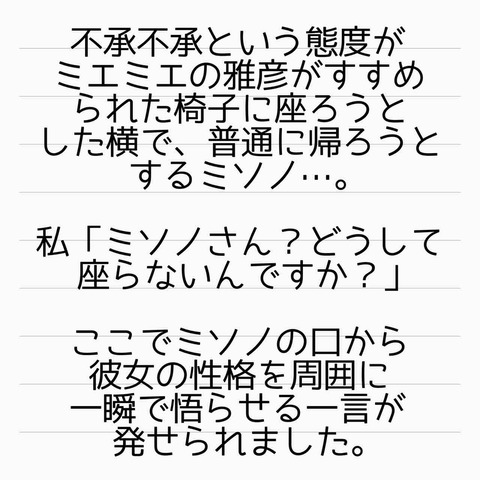 不承不承という態度が
ミエミエの雅彦がすすめ
られた椅子に座ろうと
した横で、普通に帰ろうと
するミソノ…。
私「ミソノさん？どうして
座らないんですか？」
ここでミソノの口から
彼女の性格を周囲に
一瞬で悟らせる一言が
発せられました。